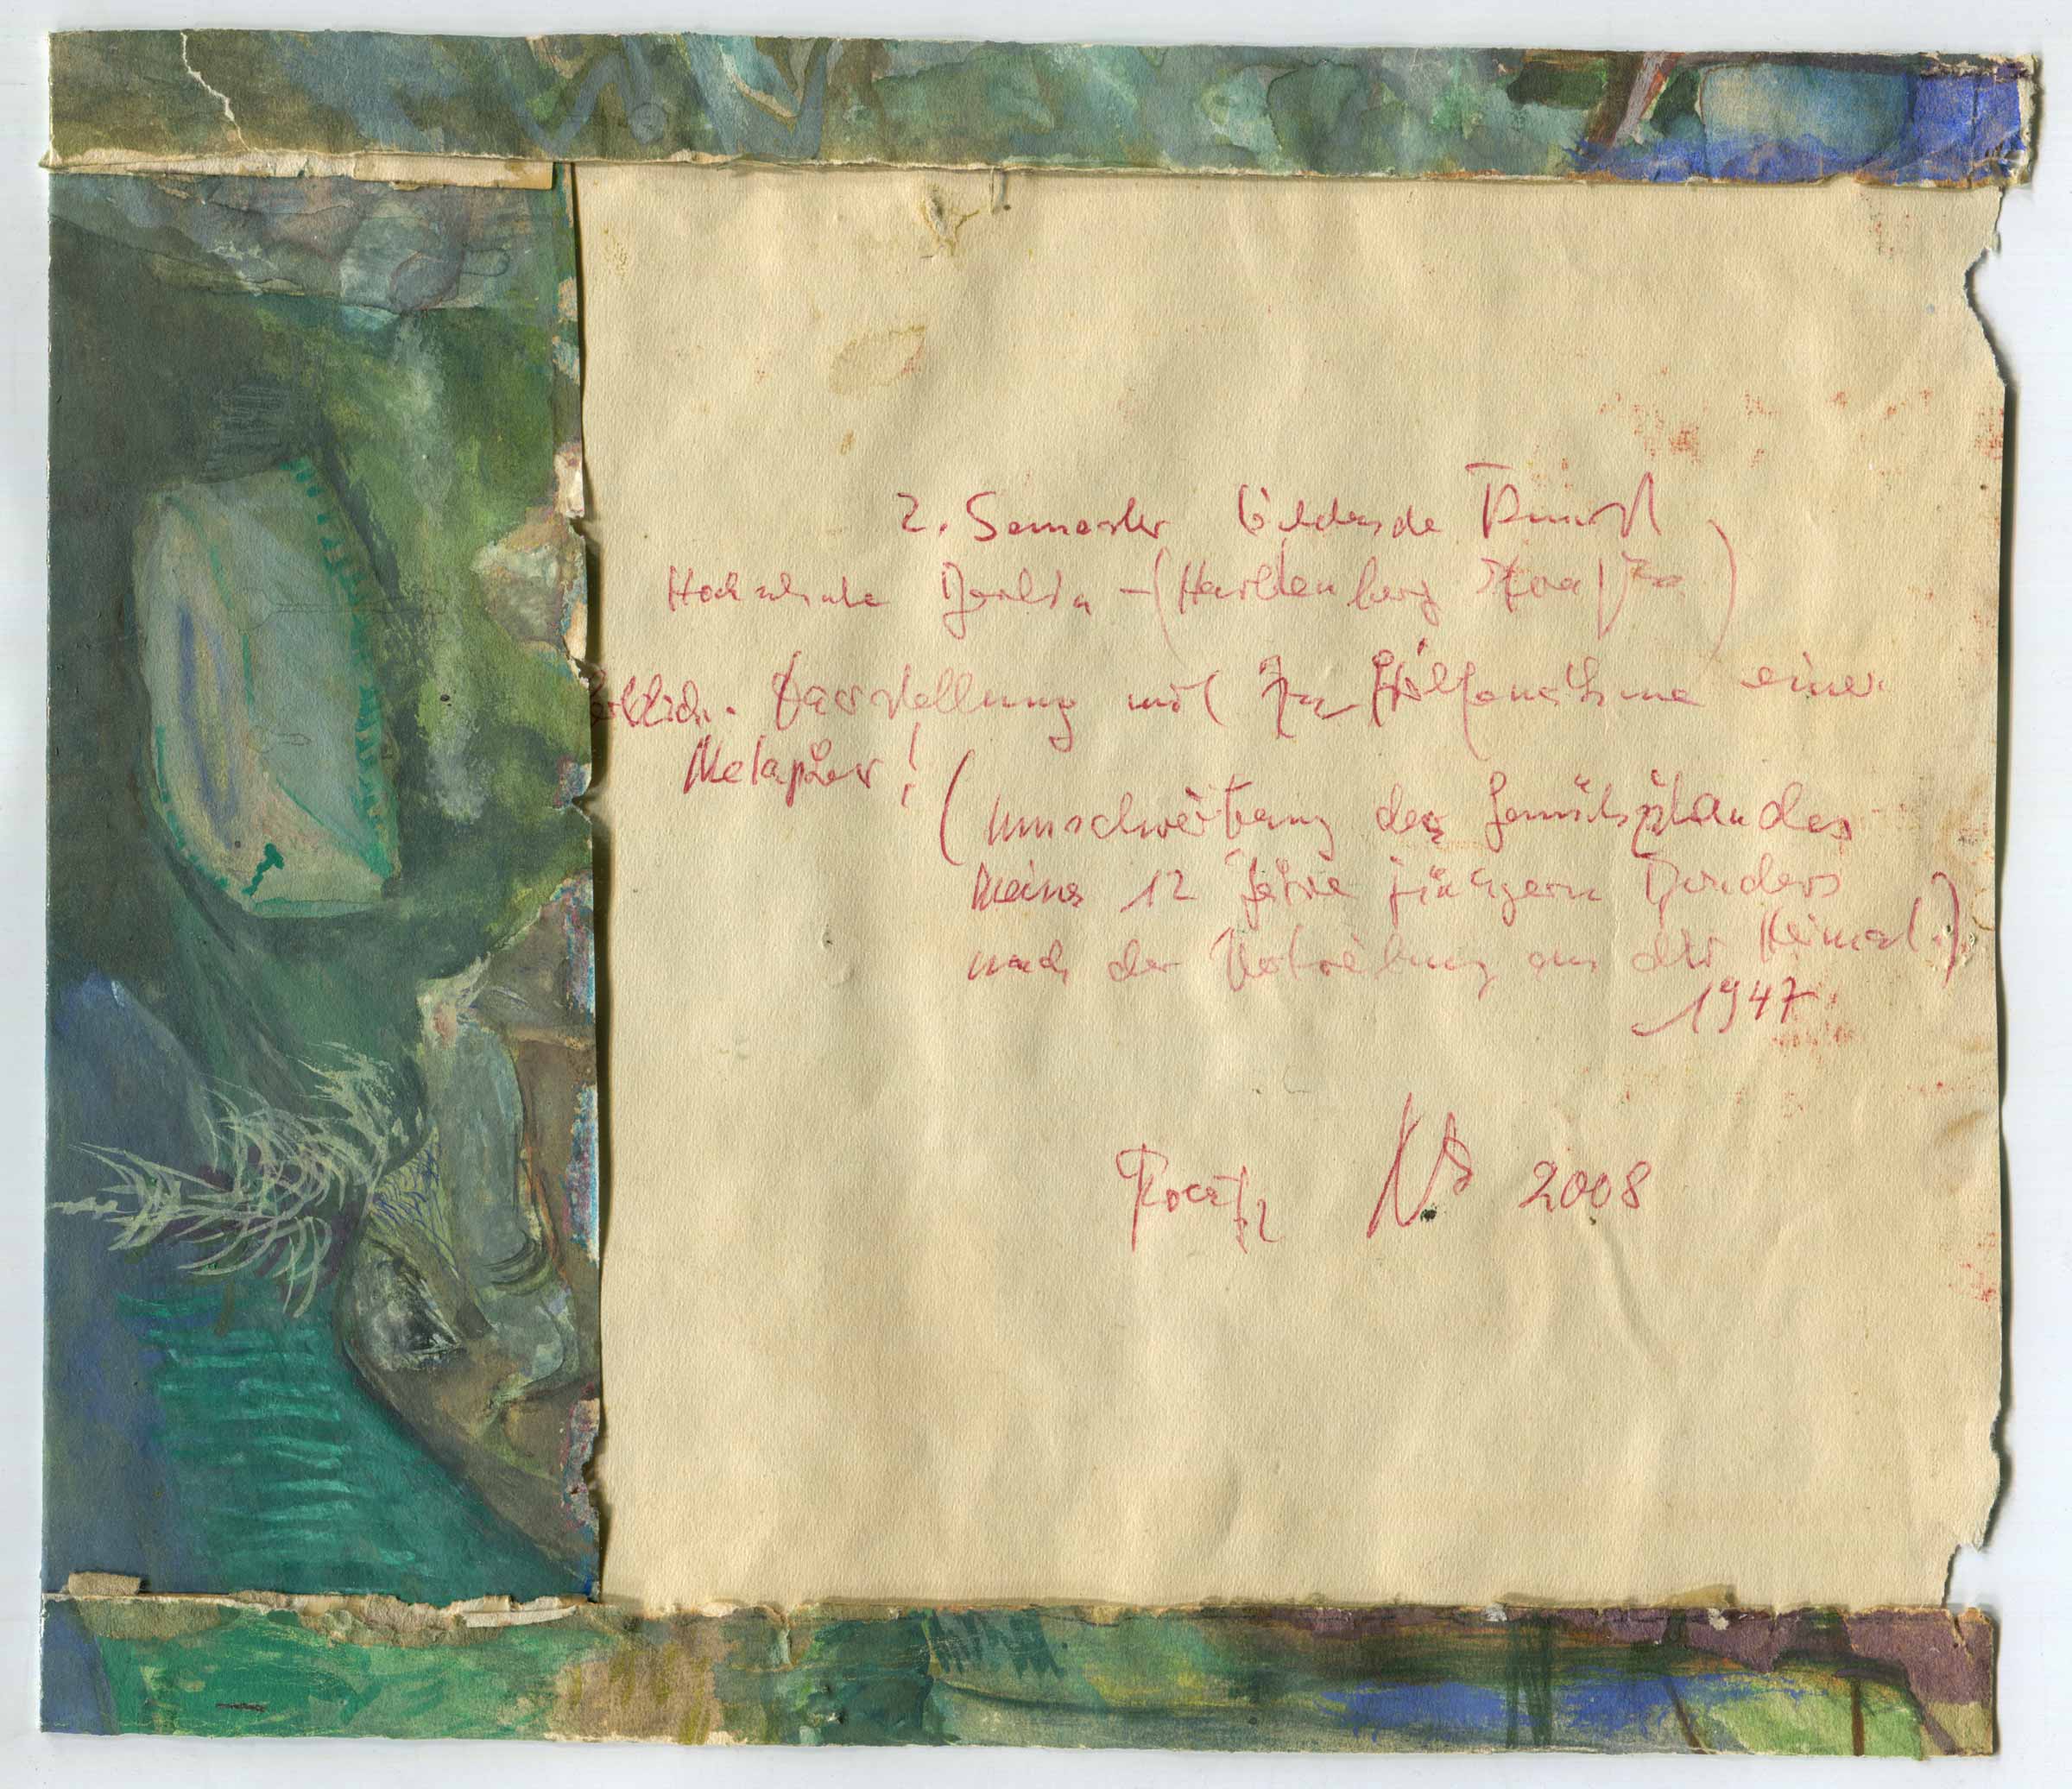 2. Semester bildende Kunst
Hochschule Berlin - (Hardenberg Straße)
Darstellung mit Zu Hilfenahme einer
Metapher!
(Umschreibung des Gemütszustandes
meines 12 Jahre jüngern Bruders
nach der Vertreibung aus der Heimat.)
1947
2008